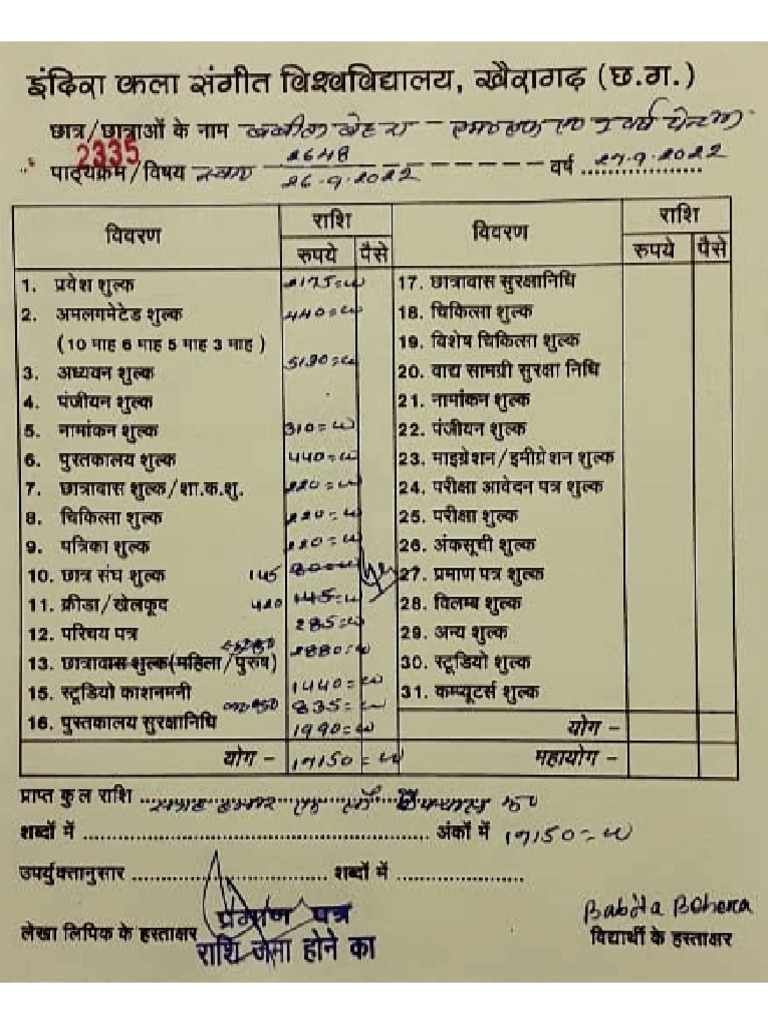 इंदिरा कला संगीत विश्वविद्यालय, खैरागढ़ (छ.ग.)
छात्र/छात्राओं के नाम बबीता बेहरा
2335
पाठ्यक्रम/विषय 2648 26.9.2022 वर्ष 27.9.2022
विवरण राशि विवरण राशि
रुपये पैसे रुपये पैसे
1. प्रवेश शुल्क 2175=00 17. छात्रावास सुरक्षानिधि
2. अमलगमेटेड शुल्क 440=00 18. चिकित्सा शुल्क
(10 माह 6 माह 5 माह 3 माह) 19. विशेष चिकित्सा शुल्क
3. अध्ययन शुल्क 20. वाद्य सामग्री सुरक्षा निधि
4. पंजीयन शुल्क 21. नामांकन शुल्क
5. नामांकन शुल्क 310=00 22. पंजीयन शुल्क
6. पुस्तकालय शुल्क 440=00 23. माइग्रेशन/इमीग्रेशन शुल्क
7. छात्रावास शुल्क/शा.क.शु. 220=00 24. परीक्षा आवेदन पत्र शुल्क
8. चिकित्सा शुल्क 220=00 25. परीक्षा शुल्क
9. पत्रिका शुल्क 220=00 26. अंकसूची शुल्क
10. छात्र संघ शुल्क 145 80=00 27. प्रमाण पत्र शुल्क
11. क्रीडा/खेलकूद 420 145=00 28. विलम्ब शुल्क
12. परिचय पत्र 285=00 29. अन्य शुल्क
13. छात्रावास शुल्क(महिला/पुरुष) 2880=00 30. स्टूडियो शुल्क
15. स्टूडियो काशनमनी 1440=00 31. कम्प्यूटर्स शुल्क
835=00
16. पुस्तकालय सुरक्षानिधि 1990=00 योग -
योग - 17150=00 महायोग -
प्राप्त कुल राशि
शब्दों में अंकों में 17150=00
उपर्युक्तानुसार शब्दों में
प्रमाण पत्र
Babita Behera
लेखा लिपिक के हस्ताक्षर राशि जमा होने का विद्यार्थी के हस्ताक्षर